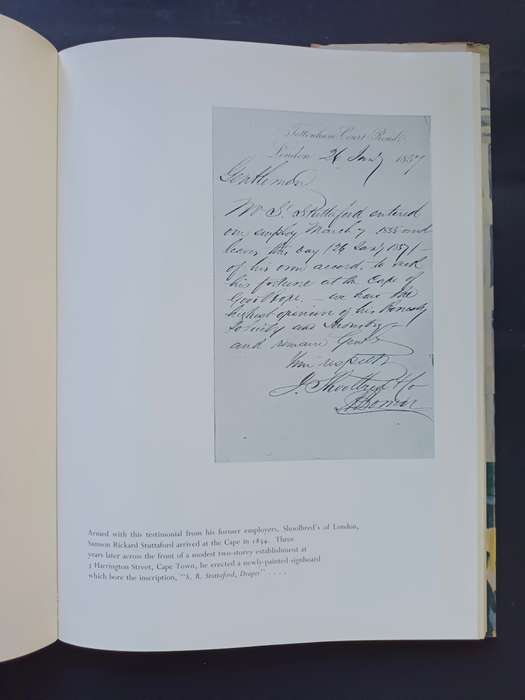 Tottenham Court Road,
London 26 Jany 1857
Gentlemen
Mr S. Stuttaford entered
our employ March 7 1855 and
leaves this day (26 Jany 1857)
of his own accord, to seek
his fortune at the Cape of
Good hope. — we have the
highest opinion of his Honesty
Sobriety and
and remain Gents
Yours respectfy
J. Shoolbred & Co
Armed with this testimonial from his former employers, Shoolbred's of London,
Samson Rickard Stuttaford arrived at the Cape in 1854. Three
years later across the front of a modest two-storey establishment at
3 Harrington Street, Cape Town, he erected a newly-painted signboard
which bore the inscription, "S. R. Stuttaford, Draper" . . . .